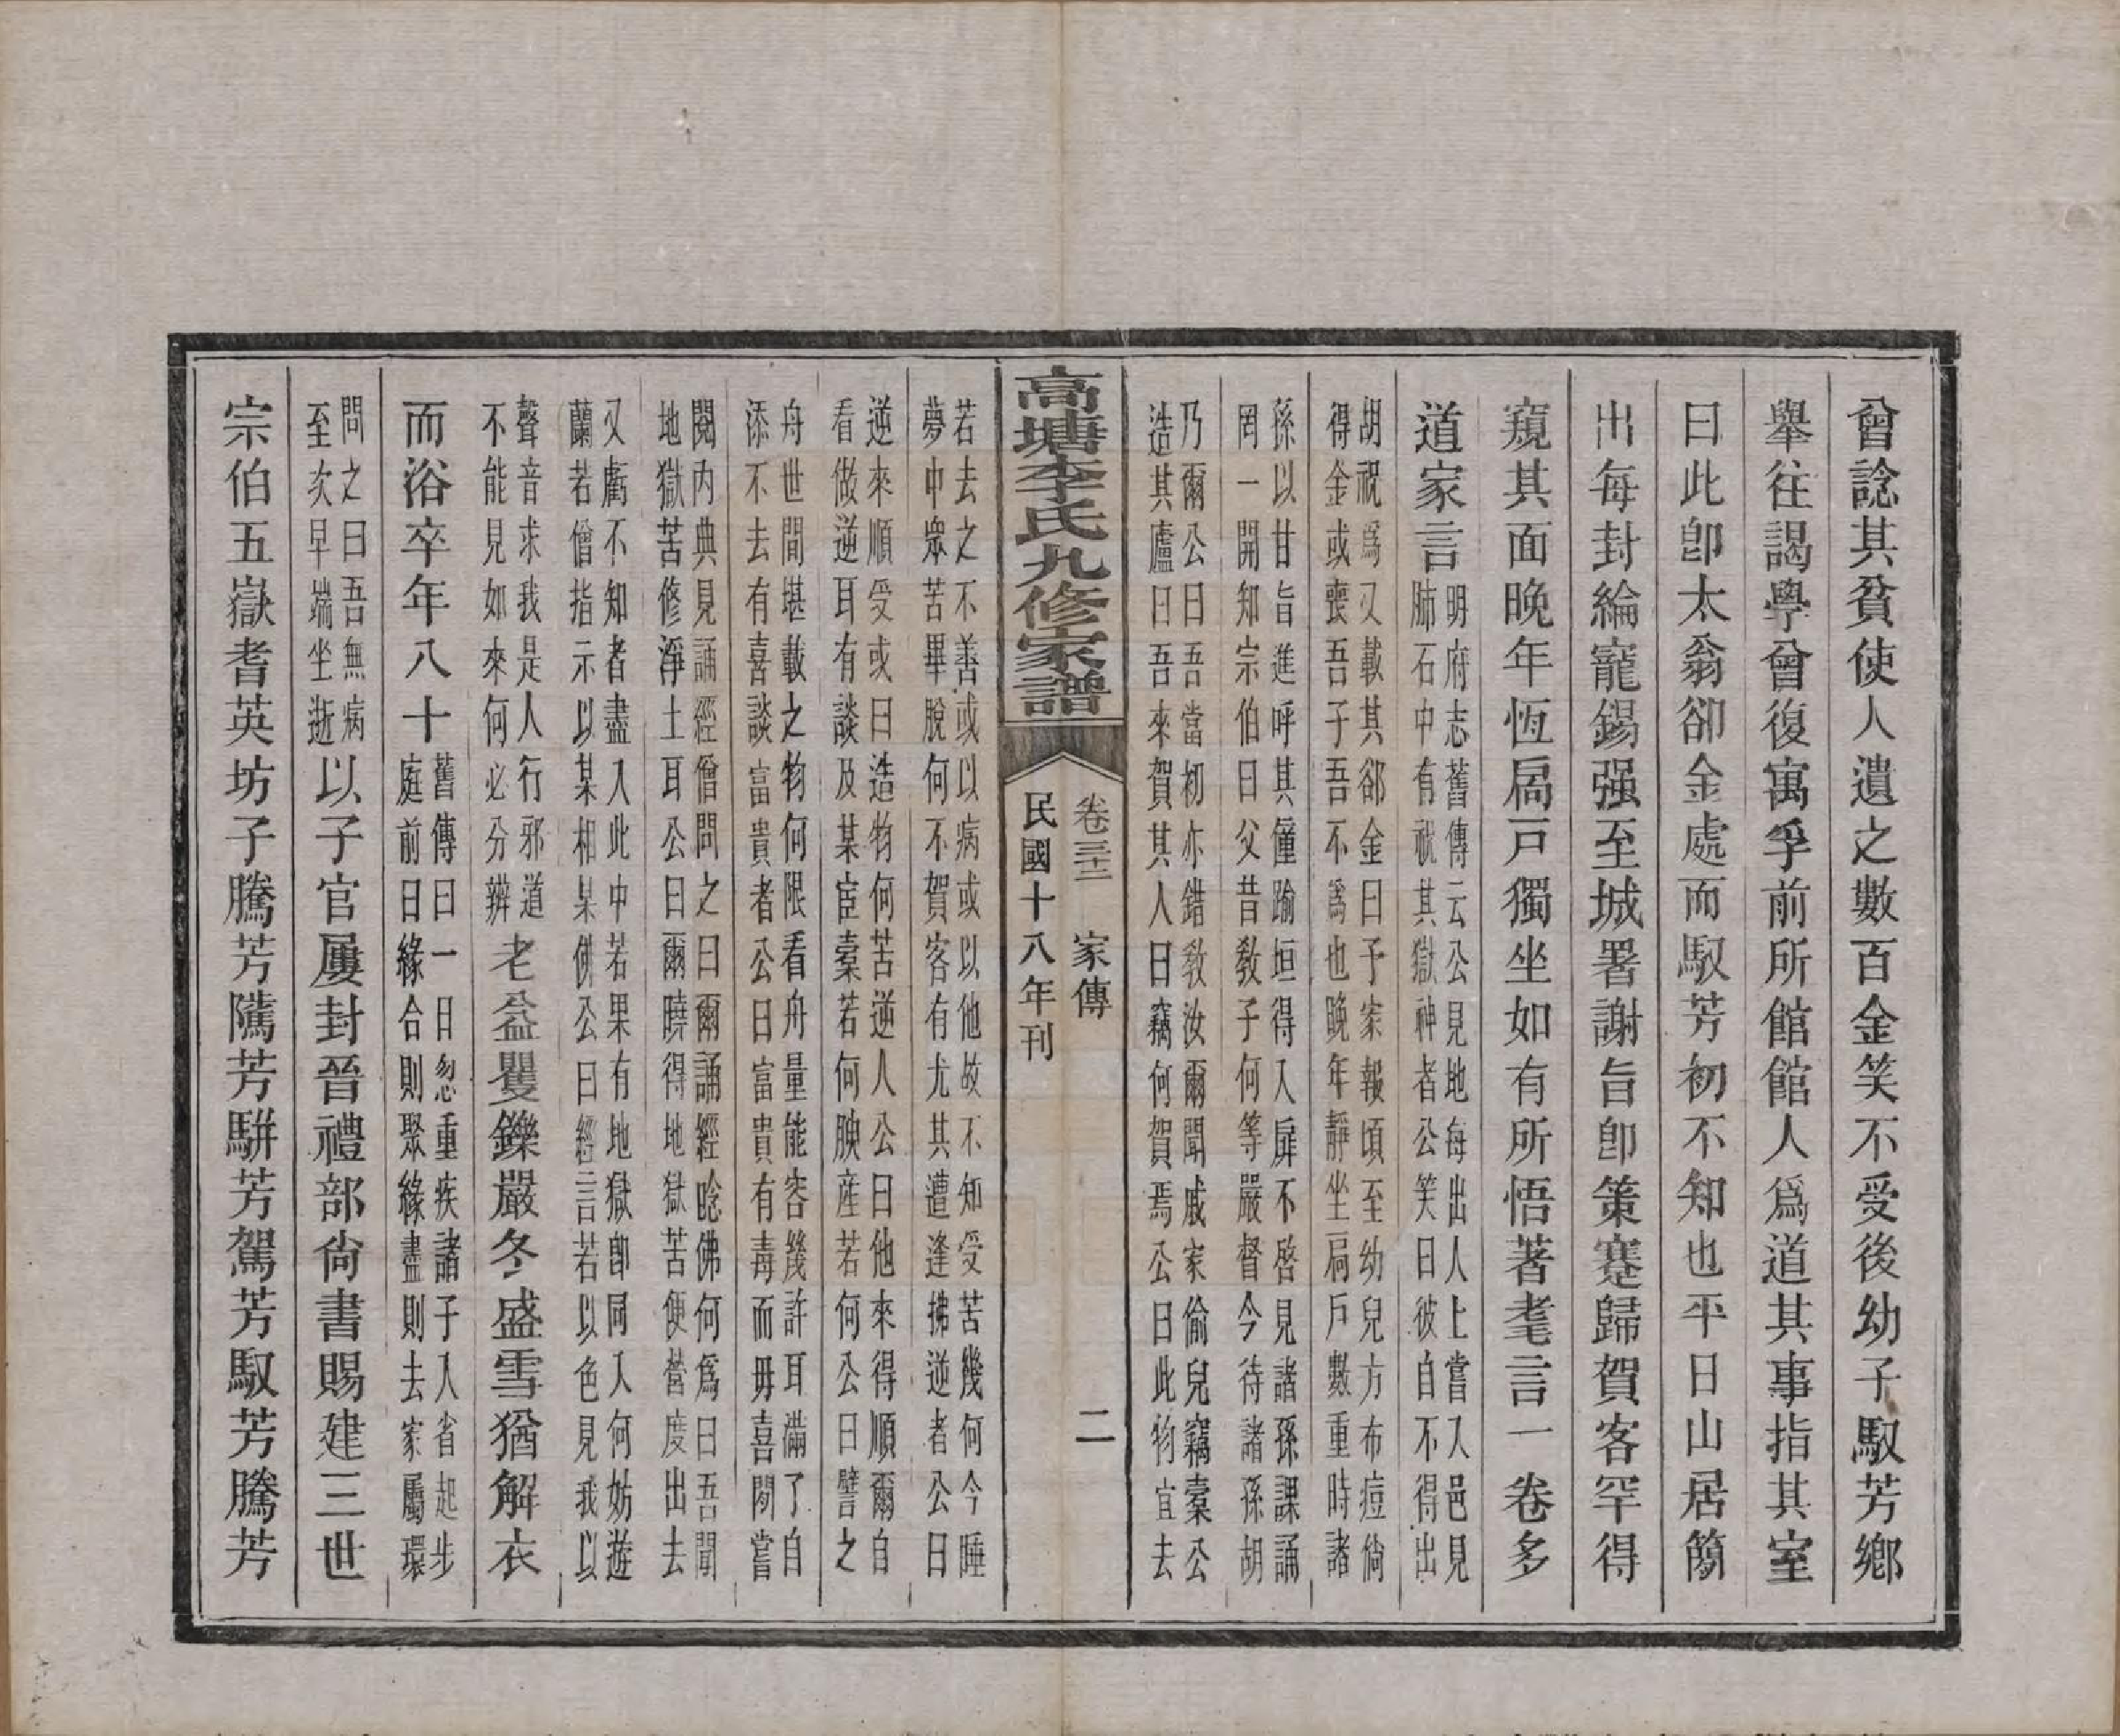 曾諗其貧使人遺之數百金笑不受後幼子馭芳鄉
舉往謁學曾復寓孚前所館館人爲道其事指其室
曰此卽太翁卻金處而馭芳初不知也平日山居簡
出每封綸寵錫强至城署謝旨卽策蹇歸賀客罕得
窺其面晚年恆扃戸獨坐如有所悟著耄言一卷多
道家言
明府志舊傳云公見地每出人上嘗入邑見
肺石中有祝其獄神者公笑曰彼自不得出
胡祝爲又載其郤金曰予家報頃至幼兒方布痘倘
得金或喪吾子吾不爲也晚年靜坐扃戶數重時諸
孫以甘旨進呼其僮踰垣得入扉不啓見諸孫課誦
罔一開知宗伯曰父昔敎子何等嚴督今待諸孫胡
乃爾公曰吾當初亦錯敎汝爾聞戚家偷兒竊橐公
造其廬曰吾來賀其人曰竊何賀焉公曰此物宜去
高塘李氏九修家譜
卷三十二 家傳 二
民國十八年刊
若去之不善或以病或以他故不知受苦幾何今睡
夢中衆苦畢脫何不賀客有尤其遭逢拂逆者公曰
逆來順受或曰造物何苦逆人公曰他來得順爾自
看做逆耳有談及某宦橐若何腴産若何公曰譬之
舟世間堪載之物何限看舟量能容幾許耳滿了自
添不去有喜談富貴者公曰富貴有毒而毋喜閱嘗
閱内典見誦經僧問之曰爾誦經唸佛何爲曰吾聞
地獄苦修淨土耳公曰爾曉得地獄苦便營度出去
又虧不知者盡入此中若果有地獄卽同入何妨遊
蘭若僧指示以某相某佛公曰經言若以色見我以
聲音求我是人行邪道
不能見如來何必分辨
老益矍鑠嚴冬盛雪猶解衣
而浴卒年八十
舊傳曰一日忽重疾諸子入省起步
庭前曰緣合則聚緣盡則去家屬環
問之曰吾無病
至次早端坐逝
以子官屢封晉禮部尙書賜建三世
宗伯五嶽耆英坊子騰芳隲芳駢芳駕芳馭芳騰芳